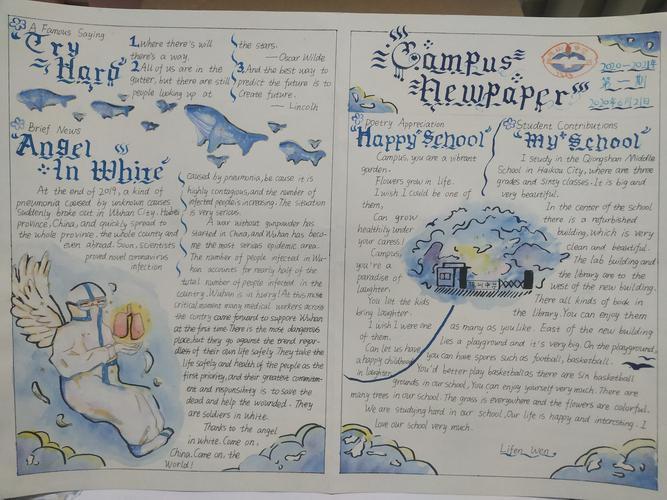 A Famous Saying
"Try
Hard"
1. Where there's will
there's a way.
2. All of us are in the
gutter, but there are still
people looking up at
the stars.
— Oscar Wilde
3. And the best way to
predict the future is to
Create future.
— Lincoln
Brief News
"Angel
In White"
At the end of 2019, a kind of
pneumonia caused by unknown causes
suddenly broke out in Wuhan City, Hubei
province, China, and quickly spread to
the whole province, the whole county and
even abroad. Soon, scientists
proved novel coronavirus
infection
caused by pneumonia, because it is
highly contagious, and the number of
infected people is increasing. The situation
is very serious.
A war without gunpowder has
started in China, and Wuhan has beco-
me the most serious epidemic area.
The number of people infected in Wu-
han accounts for nearly half of the
total number of people infected in the
country. Wuhan is in hurry! At this most
critical moment many medical workers across
the contry came forward to support Wuhan
at the first time. There is the most dangerous
place, but they go against the trend regar-
dless of their own life safely. They take the
life safely and health of the people as the
first priority, and their greatest commitm-
ent and responsibility is to save the
dead and help the wounded. They
are soldiers in white.
Thanks to the angel
in white. Come on,
China. Come on, the
World!
"Campus
Newpaper"
2020-2021年
第一期
2020年6月21日
Poetry Appreciation
"Happy School"
Campus, you are a vibrant
garden.
Flowers grow in life.
I wish I could be one of
them,
Can grow
healthily under
your caress!
Campus,
you're a
paradise of
laughter.
You let the kids
bring laughter.
I wish I were one
of them,
Can let us have
a happy childhood
in laughter.
Student Contributions
"My School"
I study in the Qiongshan Middle
School in Haikou City, where are three
grades and sixty classes. It is big and
very beautiful.
In the center of the school
there is a refurbished
building, which is very
clean and beautiful.
The lab building and
the library are to the
west of the new building.
There all kinds of book in
the library. You can enjoy them
as many as you like. East of the new building
lies a playground and it's very big. On the playground,
you can have spores such as football, basketball.
You'd better play basketball as there are six basketball
grounds in our school. You can enjoy yourself very much. There are
many trees in our school. The grass is everywhere and the flowers are colorful.
We are studying hard in our school. Our life is happy and interesting. I
love our school very much.
Lifen Wen